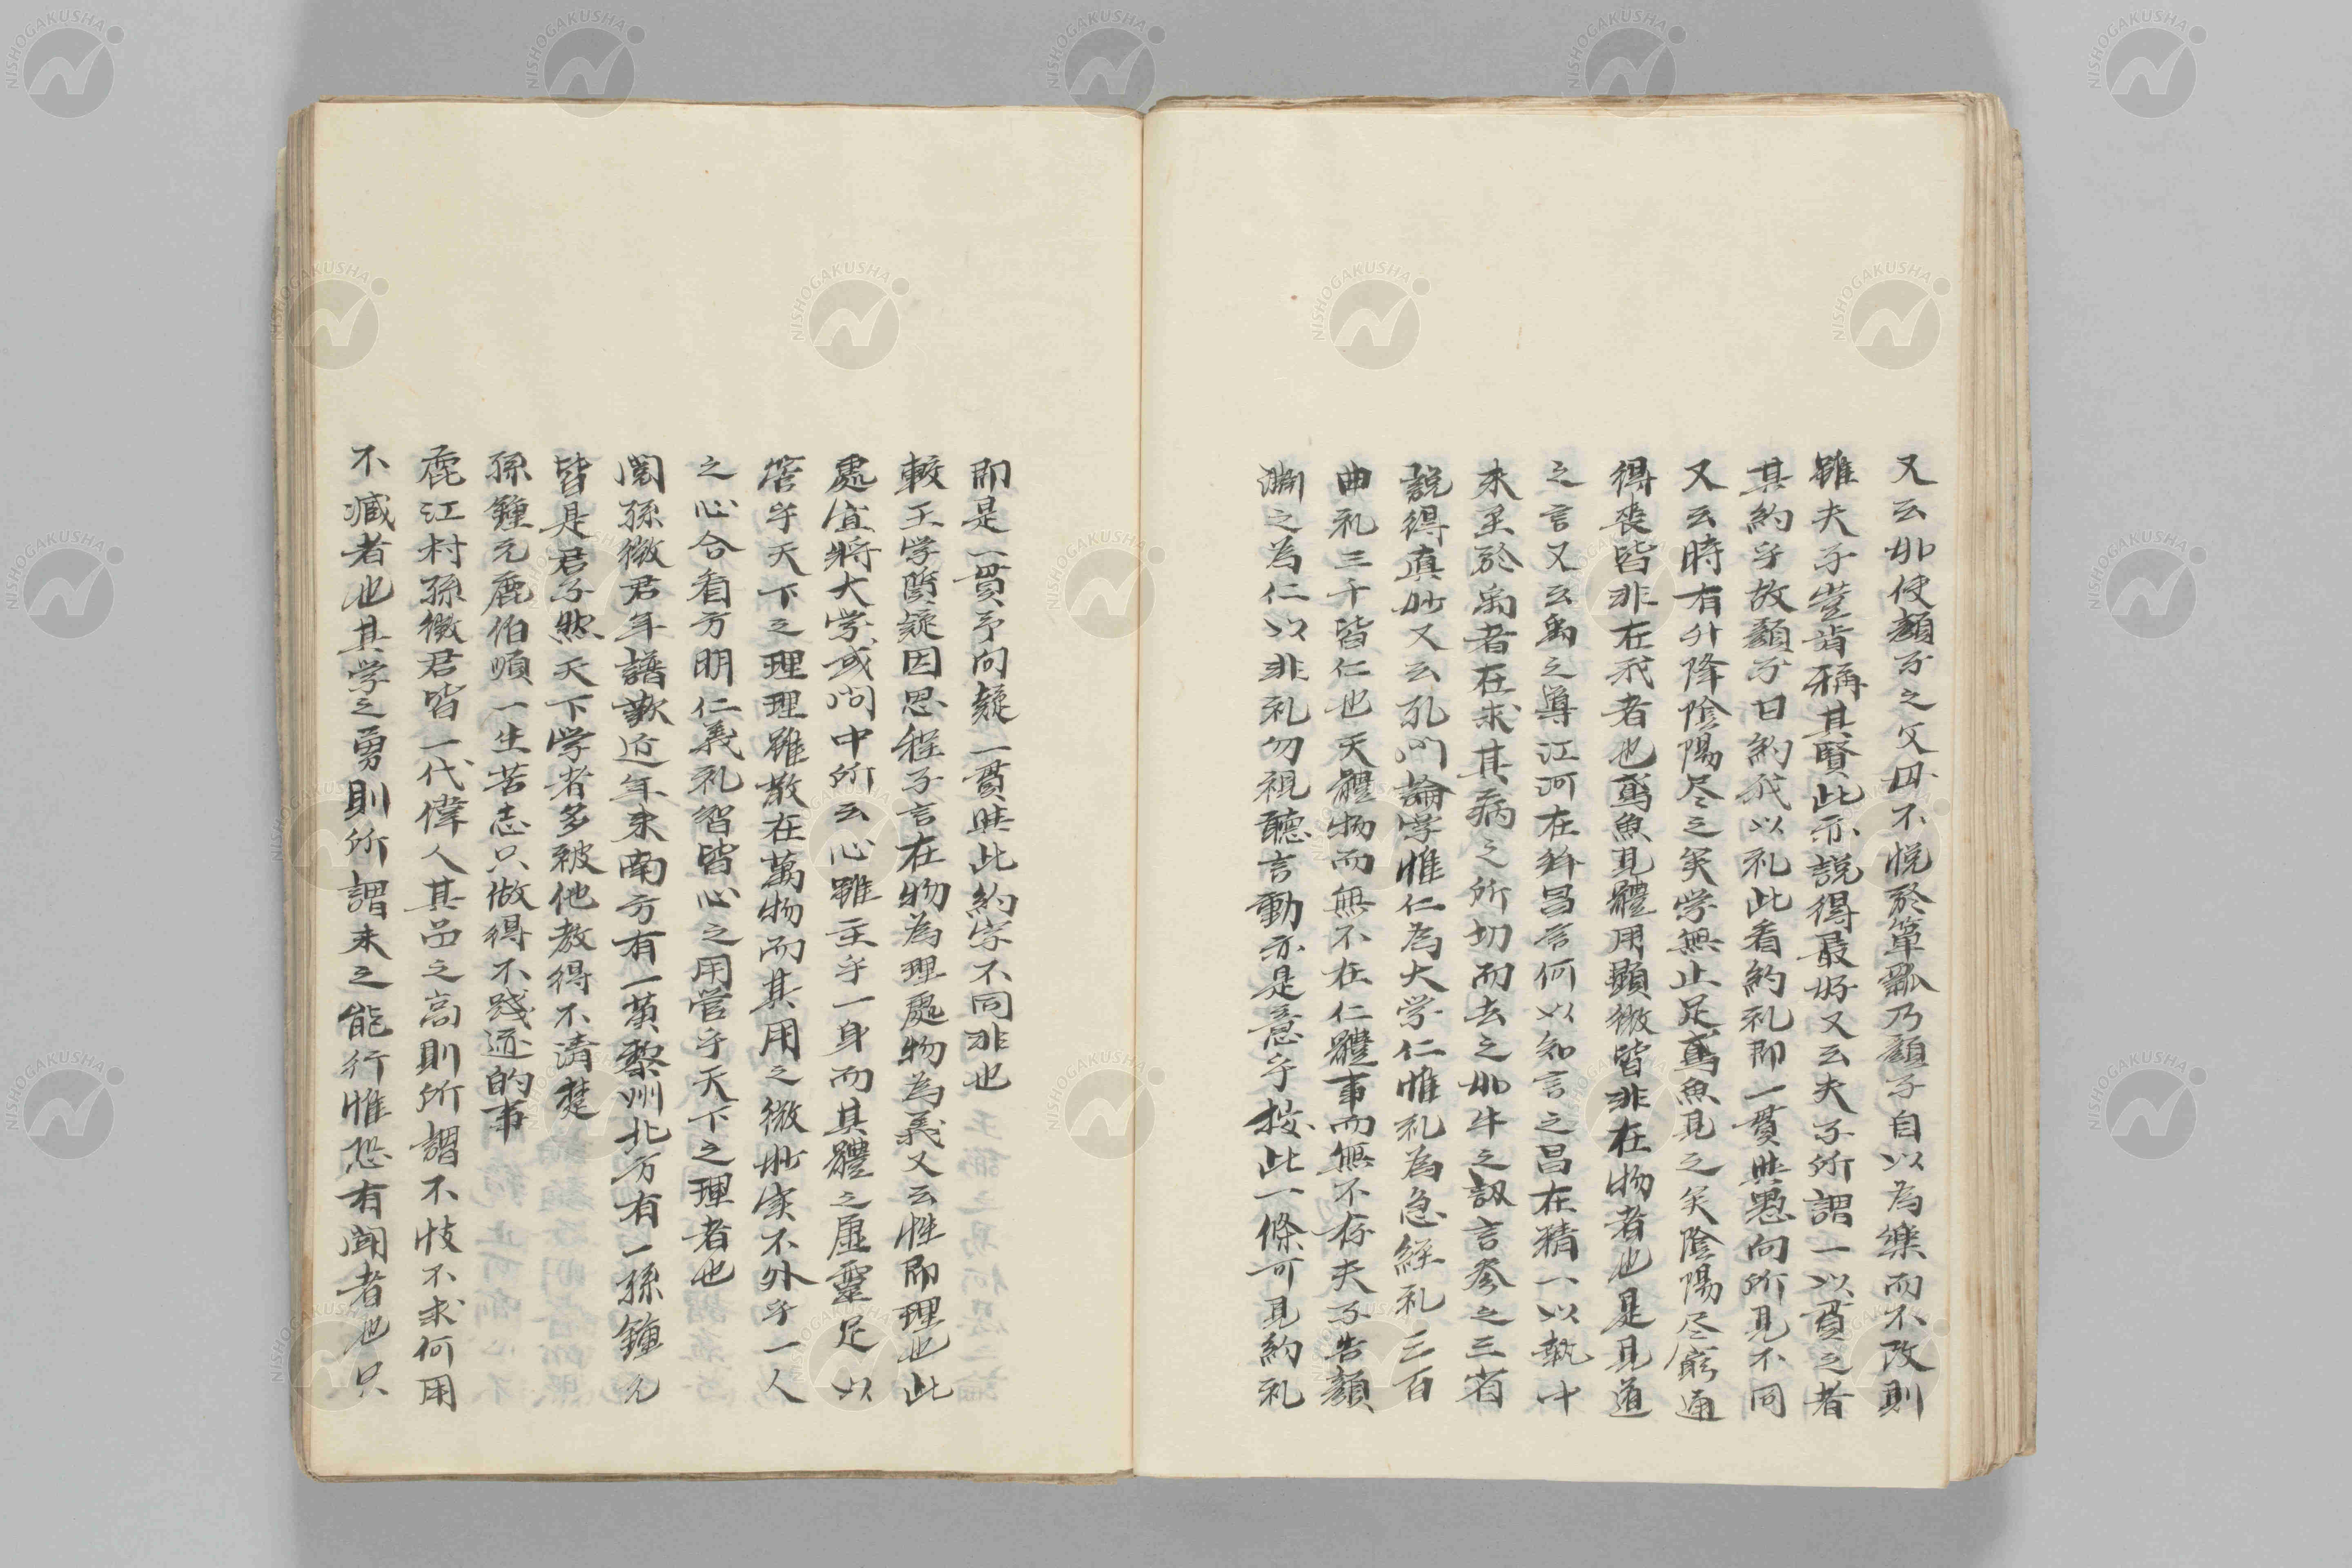 又云如使顏子之父母不悅於簞瓢乃顏子自以為樂而不改則
雖夫子豈肯稱其賢此亦説得最好又云夫子所謂一以貫之者
其約乎故顏子曰約我以礼此看約礼即一貫與愚向所見不同
又云時有升降陰陽尽之矣学無止足鳶魚見之矣陰陽尽窮通
得喪皆非在我者也鳶魚見體用顯微皆非在物者也是見道
之言又云禹之導江河在斜昌言何以知言之昌在精一以執中
来至於禹者在求其病之所切而去之如牛之訒言參之三省
説得真妙又云孔門論学惟仁為大学仁惟礼為急經礼三百
曲礼三千皆仁也天體物而無不在仁體事而無不存夫子告顏
淵之為仁以非礼勿視聽言動亦是意乎按此一條可見約礼
即是一貫予向疑一貫與此約字不同非也
較王学質疑因思程子言在物為理處物為義又云性即理也此
處宜將大学或问中所云心雖主乎一身而其體之虛靈足以
管乎天下之理理雖散在萬物而其用之微妙実不外乎一人
之心合看方明仁義礼智皆心之用管乎天下之理者也
閲孫徵君年譜歎近年来南方有一黃黎州北方有一孫鍾元
皆是君子然天下学者多被他教得不清楚
孫鍾元鹿伯順一生苦志只做得不踐迹的事
鹿江村孫徵君皆一代偉人其品之高則所謂不忮不求何用
不臧者也其学之勇則所謂未之能行惟恐有聞者也只
NISHOGAKUSHA